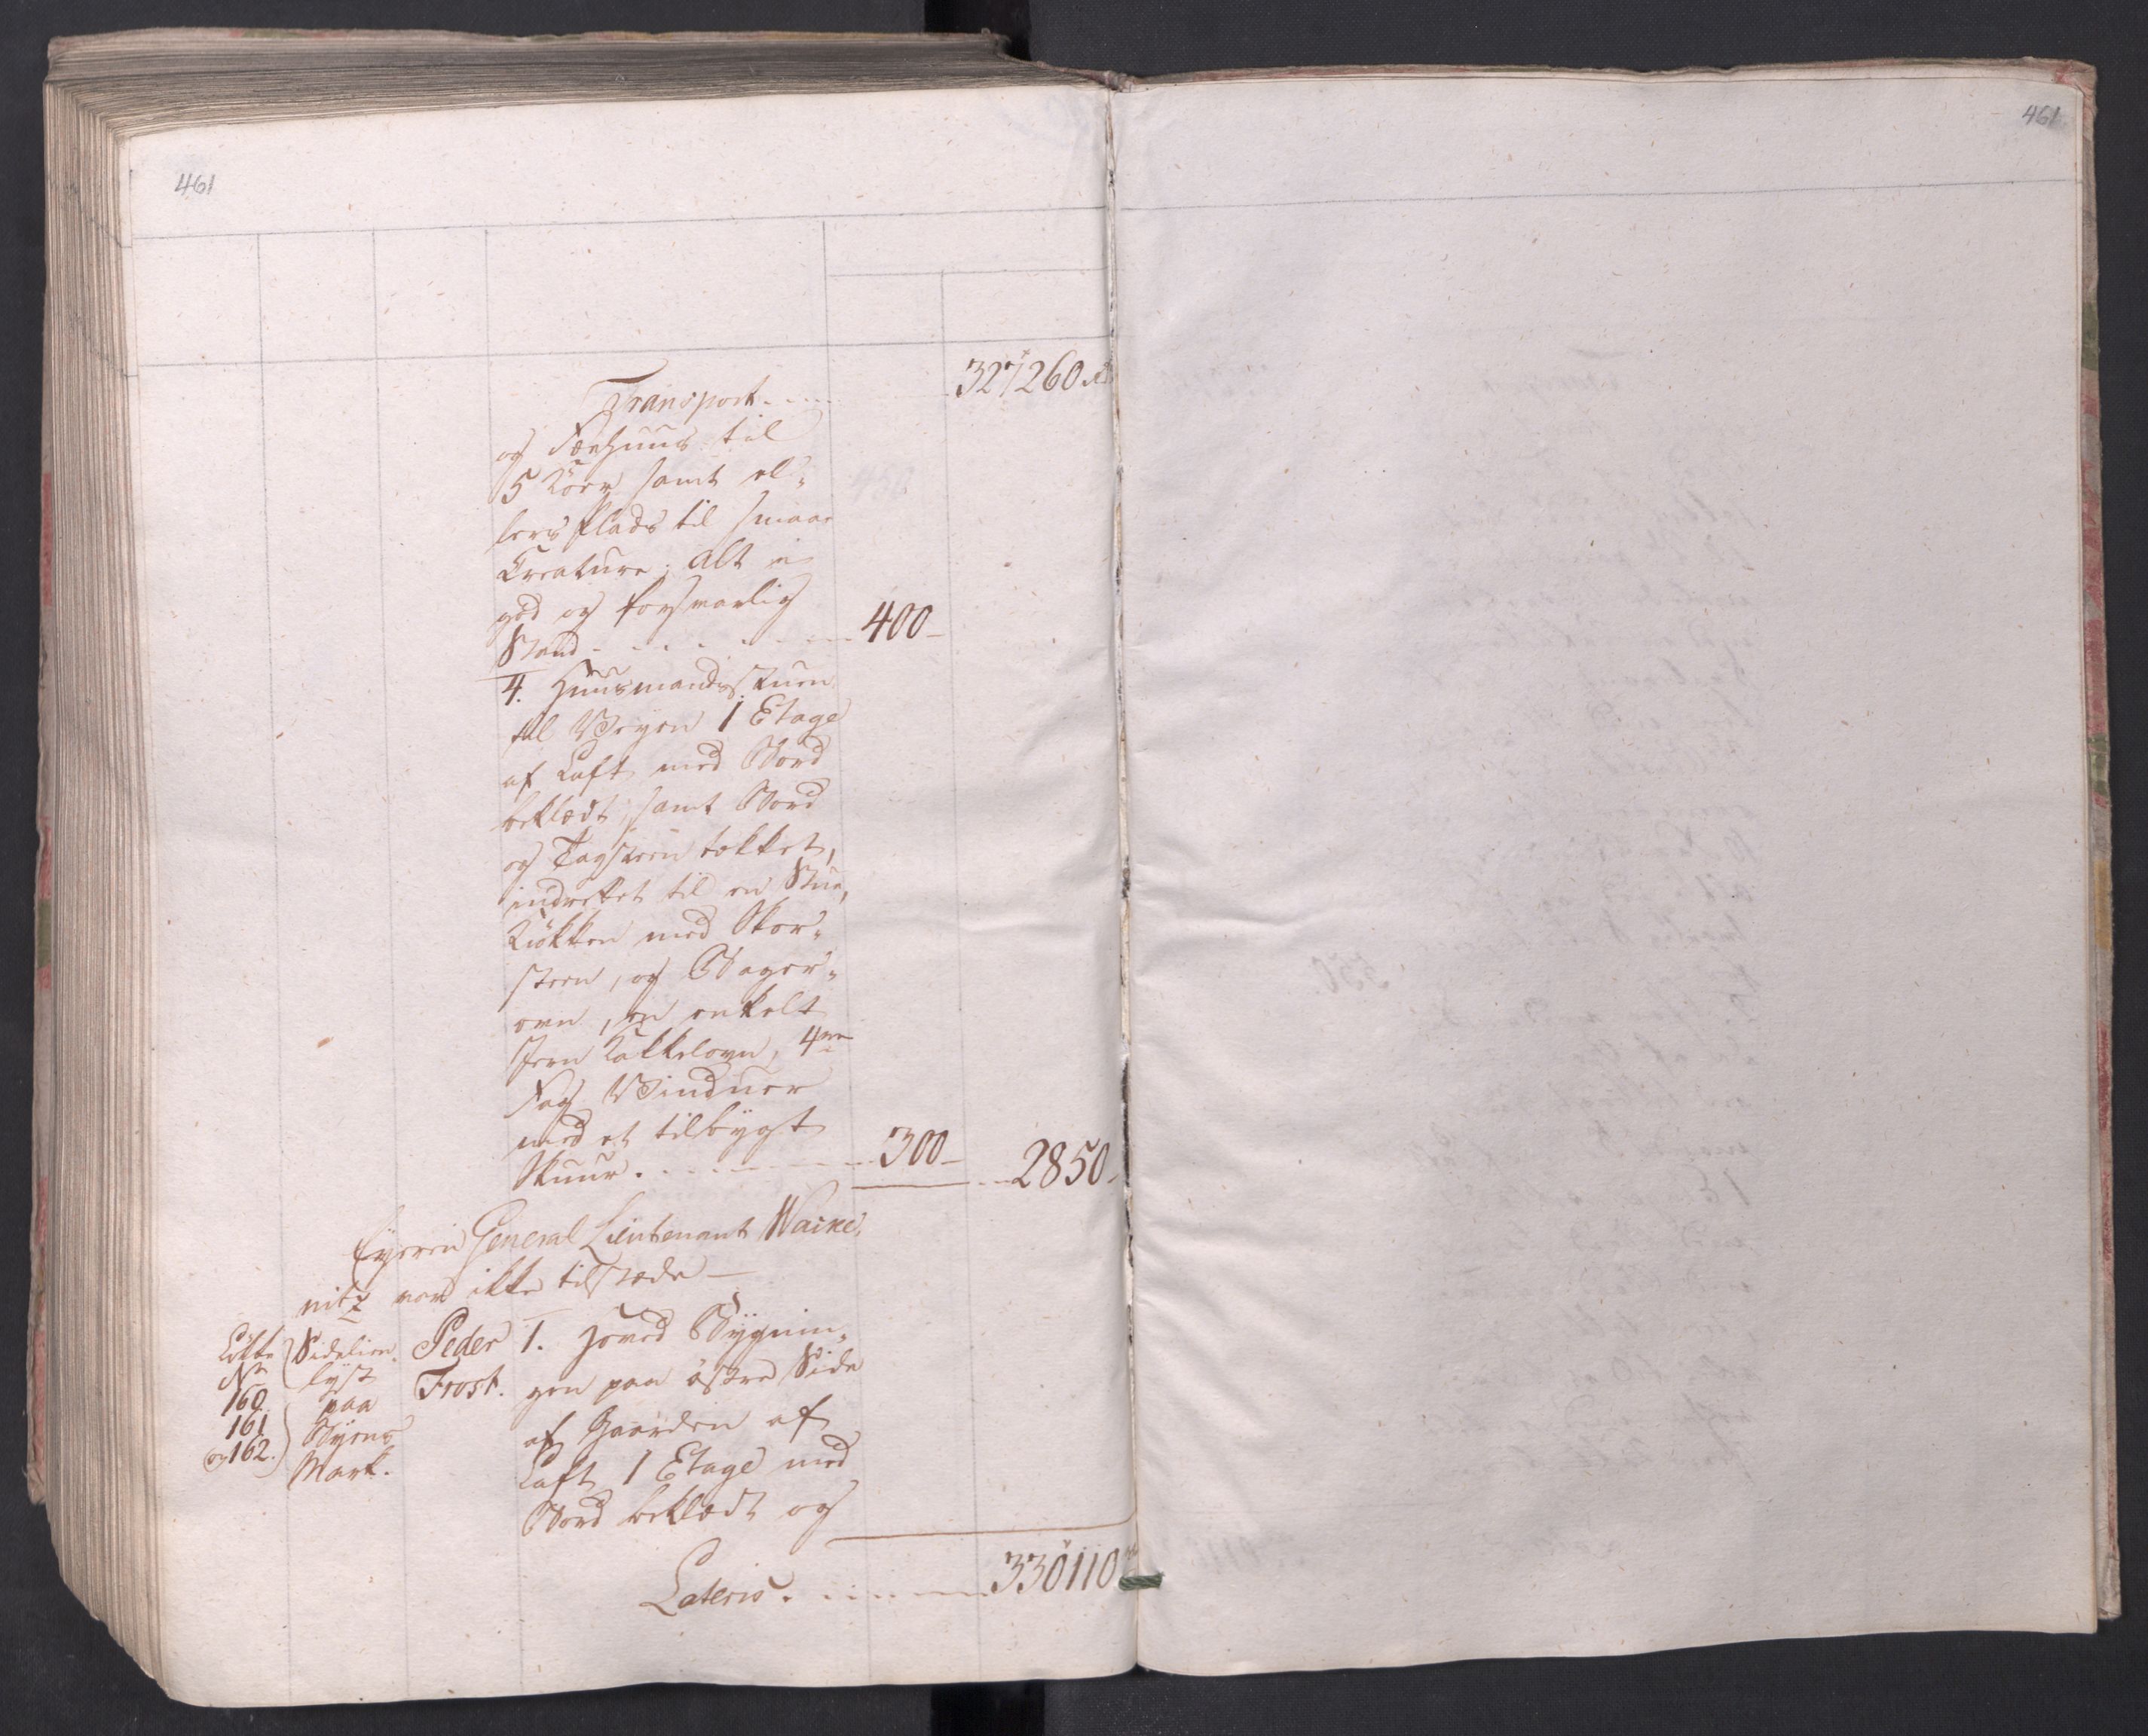 461
461
Transport . . . . . 327260 Rd
og Fæehuus til
5 Kiöer samt el-
lers Plads til smaae
Creature; alt i
god og forsvarlig
Stand . . . . . . . 400 -
4. Huusmandsstuen
til Veyen 1 Etage
af Laft med Bord
beklædt, samt Bord
og Tagsteen tækket,
indrettet til en Stue,
Kiökken med Skor-
steen, og Bager-
ovn, en enkelt
Jern Kakkelovn, 4re
Fag Vinduer
med et tilbygt
Skuur . . . . . . 300 - . . 2850 -
Eyeren General Lieutenant Wacke-
nitz var ikke tilstæde —
Lökke
No
160.
161
og 162.
Sidelien-
lyst
paa
Byens
Mark.
Peder
Frost.
1. Hoved Bygnin-
gen paa östre Side
af Gaarden af
Laft 1 Etage med
Bord beklædt og
Lateris . . . . . . 330110